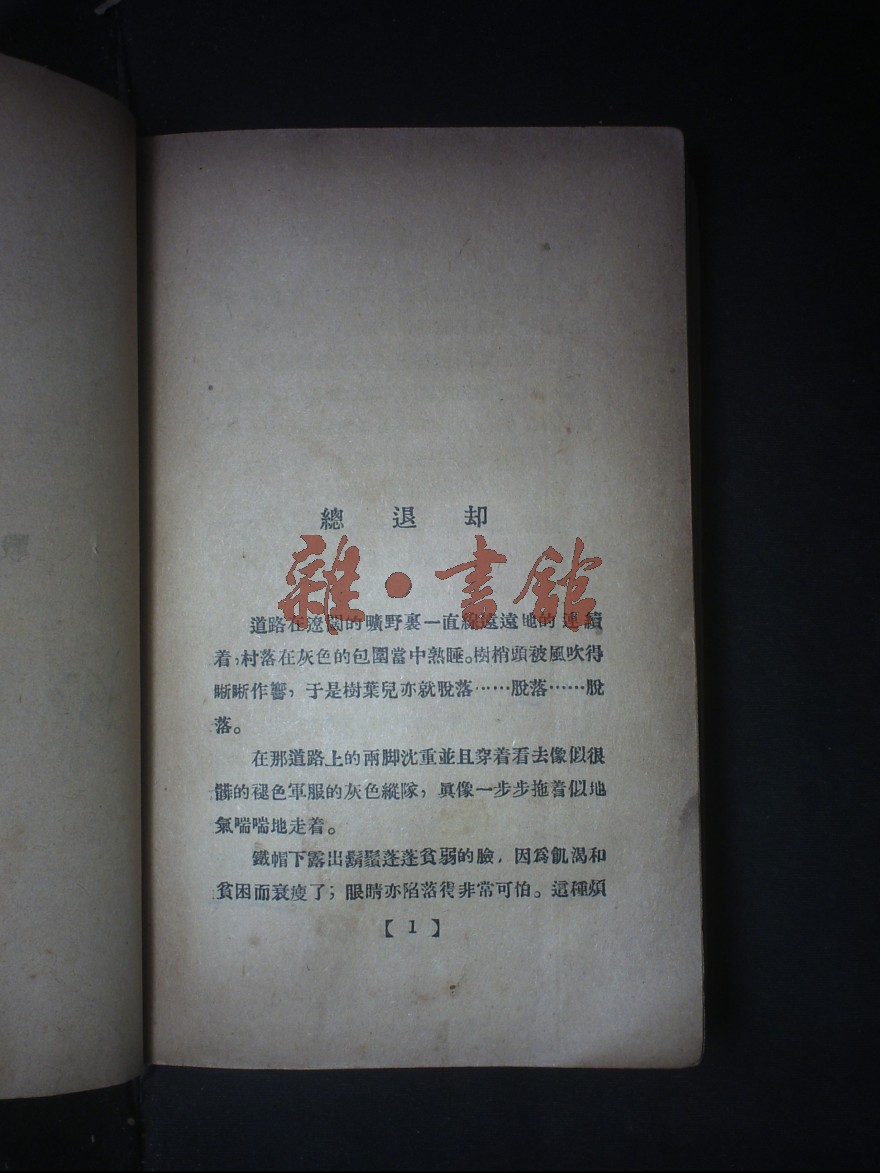 總退却
雜·書館
道路在遼闊的曠野裏一直線遠遠地的連續
着，村落在灰色的包圍當中熟睡。樹梢頭被風吹得
晰晰作響，于是樹葉兒亦就脫落……脫落……脫
落。
在那道路上的兩脚沈重並且穿着看去像似很
髒的褪色軍服的灰色縱隊，眞像一步步拖着似地
氣喘喘地走着。
鐵帽下露出鬍鬚蓬蓬貧弱的臉，因爲飢渴和
貧困而衰瘦了；眼睛亦陷落得非常可怕。這種煩
【1】